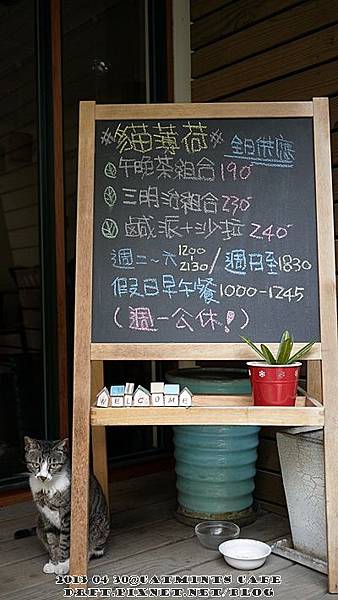 *貓薄荷* 全日供應
午晚茶組合 190
三明治組合 230
鹹派+沙拉 240
週二～六 1200-2130 / 週日到1830
假日早午餐 1000-1245
(週一公休!)
WELCOME
2013 04 30@CATMINTS CAFE
DRFT.PIXNET.NET/BLOG